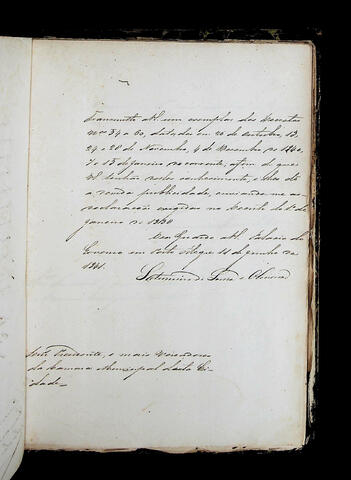 Transmitto a VS. um exemplar dos Decretos
nos 54 a 60, datados em 26 de outubro, 13,
24 e 28 de Novembro, 4 de Dezembro de 1840,
7 e 13 de Janeiro
vel tenhão conhecimento, e lhe dê
a devida publicidade, enviando me a
declaração exigida na de 1º de
Janeiro de
Deos Guarde a VS. Palacio do
Governo em Porto Alegre 11 de Junho de
1841.
Saturnino de Souza e Oliveira
Snrs Presidente, e mais Vereadores
da Camara Municipal desta Ci-
dade